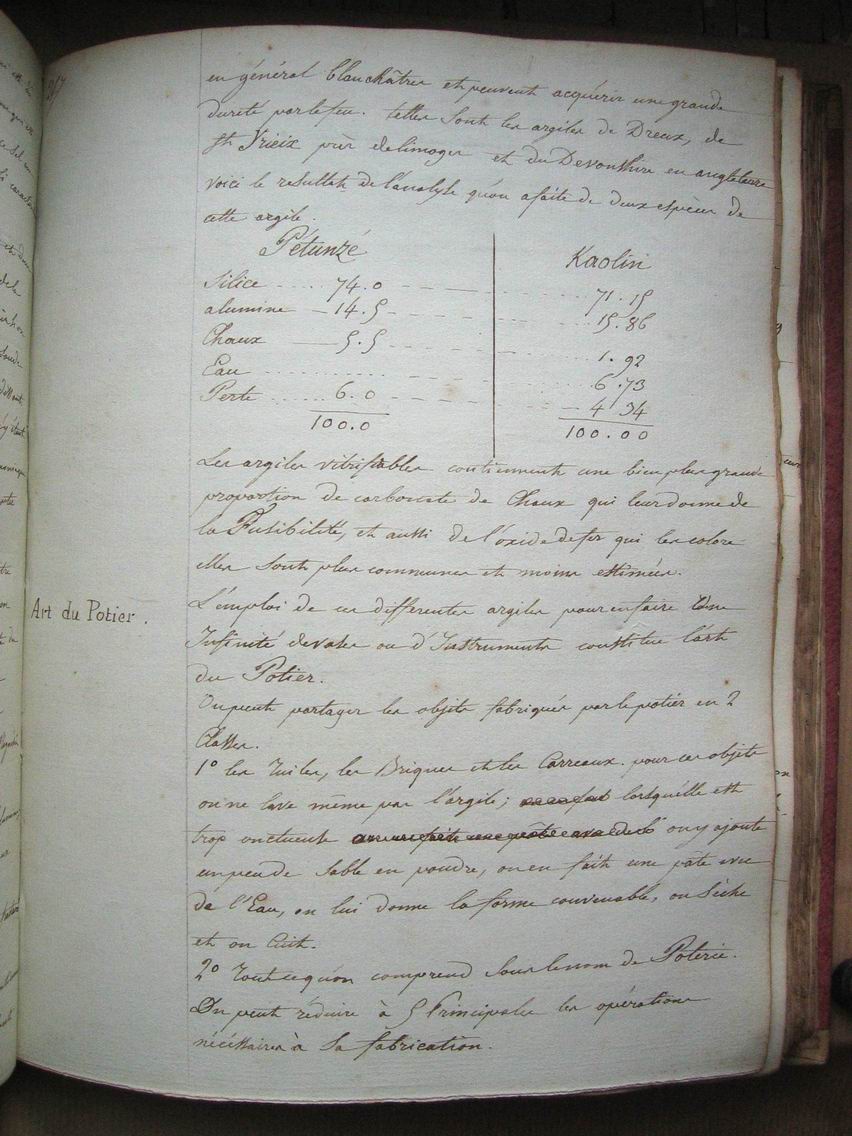 217
en général blanchâtres et peuvent acquérir une grande
dureté par le feu. telles sont les argiles de Dreux, de
St Yrieix près de limoges et du Devonshire en angleterre
voici le resultat de l'analyse qu'on a faite de deux espèces de
cette argile.
Pétunzé
Kaolin
Silice 74.0 71.15
alumine 14.5 15.86
Chaux 5.5 1.92
Eau 6.73
Perte 6.0 4 34
100.0 100.00
Les argiles vitrifiables contiennent une bien plus grande
proportion de carbonate de Chaux qui leur donne de
la Fusibilité, et aussi de l'oxide de fer qui les colore
elles sont plus communes et moins estimées.
Art du Potier.
L'emploi de ces differentes argiles pour en faire Une
Infinité de vases ou d'Instruments constitue l'art
du Potier.
On peut partager les objets fabriqués par le potier en 2
Classes.
1° les Tuiles, les Briques et les Carreaux. pour ces objets
on ne lave même pas l'argile; lorsqu'elle est
trop onctueuse on y ajoute
un peu de sable en poudre, on en fait une pate avec
de l'Eau, on lui donne la forme convenable, on sèche
et on Cuit.
2° Tout ce qu'on comprend sous le nom de Poterie.
On peut réduire à 5 Principales les opérations
nécéssaires à sa fabrication.